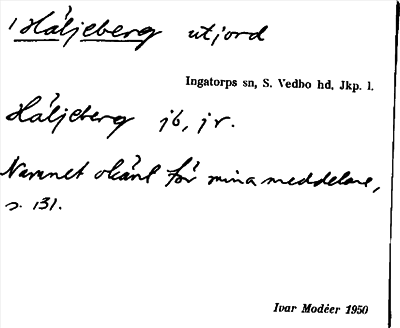 1 Häljeberg utjord
Ingatorps sn, S. Vedbo hd, Jkp. l.
Häljeberg jb, jr.
Namnet okänt för mina meddelare,
s. 131.
Ivar Modéer 1950